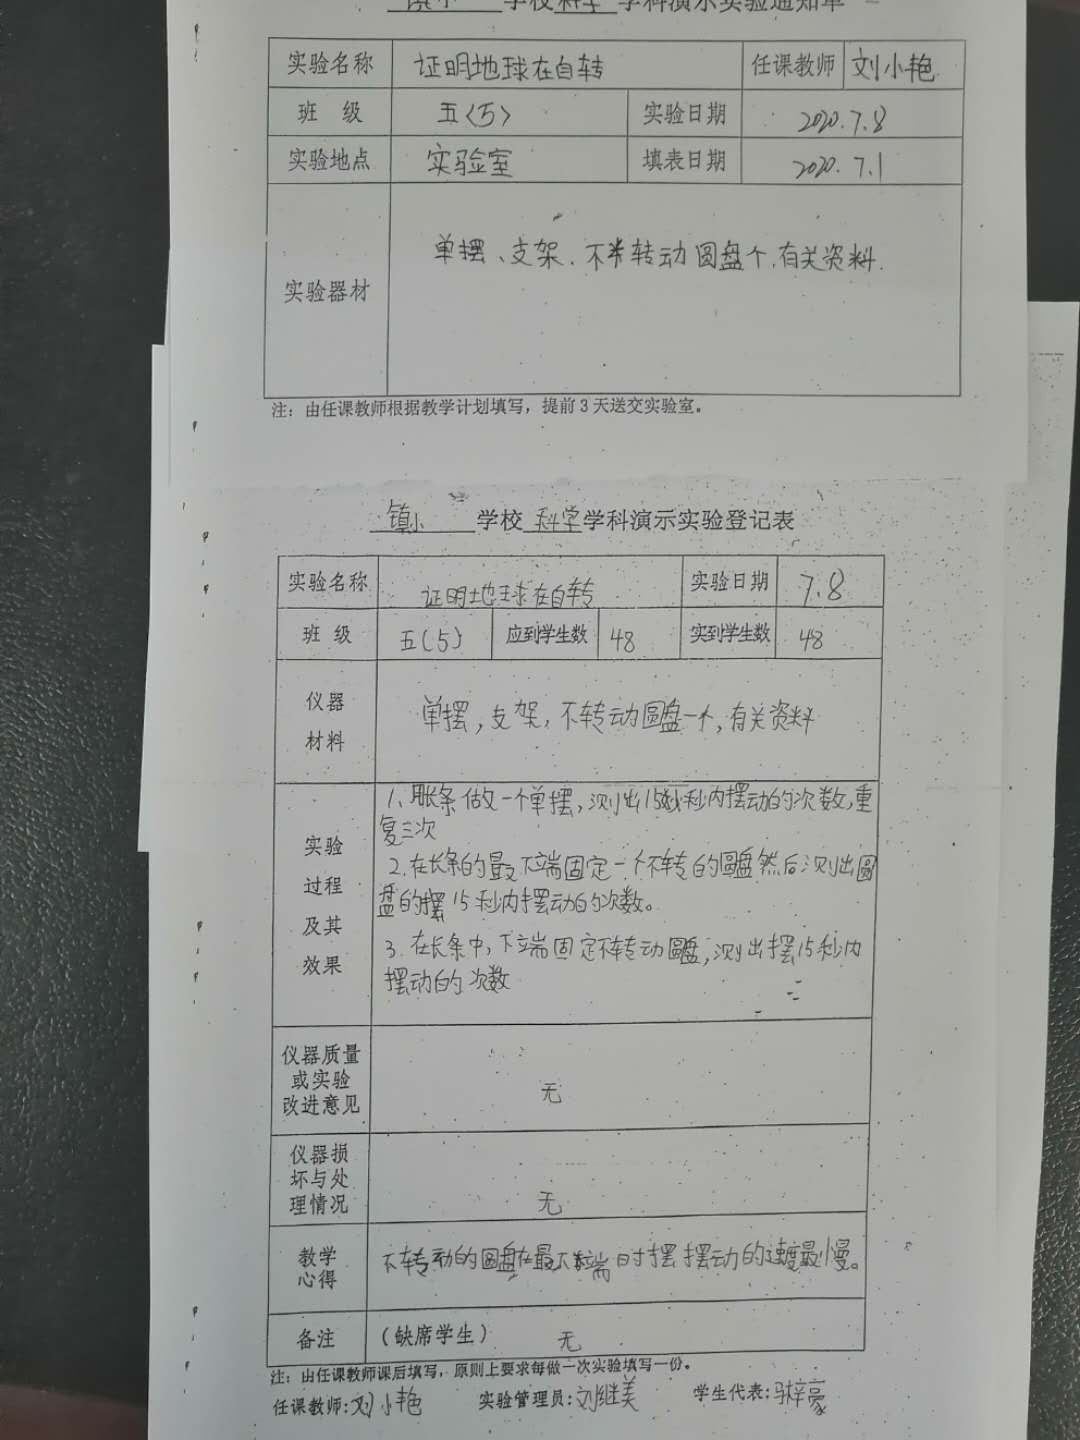 镇小 学校 科学 学科演示实验通知单
实验名称 证明地球在自转 任课教师 刘小艳
班 级 五(5) 实验日期 2020.7.8
实验地点 实验室 填表日期 2020.7.1
实验器材 单摆、支架、不转动圆盘个,有关资料.
注：由任课教师根据教学计划填写，提前3天送交实验室。
镇小 学校 科学 学科演示实验登记表
实验名称 证明地球在自转 实验日期 7.8
班 级 五(5) 应到学生数 48 实到学生数 48
仪器
材料
单摆,支架,不转动圆盘一个,有关资料
实验
过程
及其
效果
1、用长条做一个单摆,测出15秒内摆动的次数,重
复三次
2.在长条的最下端固定一个不转的圆盘然后测出圆
盘的摆15秒内摆动的次数。
3.在长条中,下端固定不转动圆盘,测出摆15秒内
摆动的次数
仪器质量
或实验
改进意见
无
仪器损
坏与处
理情况
无
教学
心得
不转动的圆盘在最下端时摆摆动的速度最慢。
备注 (缺席学生) 无
注：由任课教师课后填写，原则上要求每做一次实验填写一份。
任课教师:刘小艳 实验管理员:刘继美 学生代表:骆梓豪